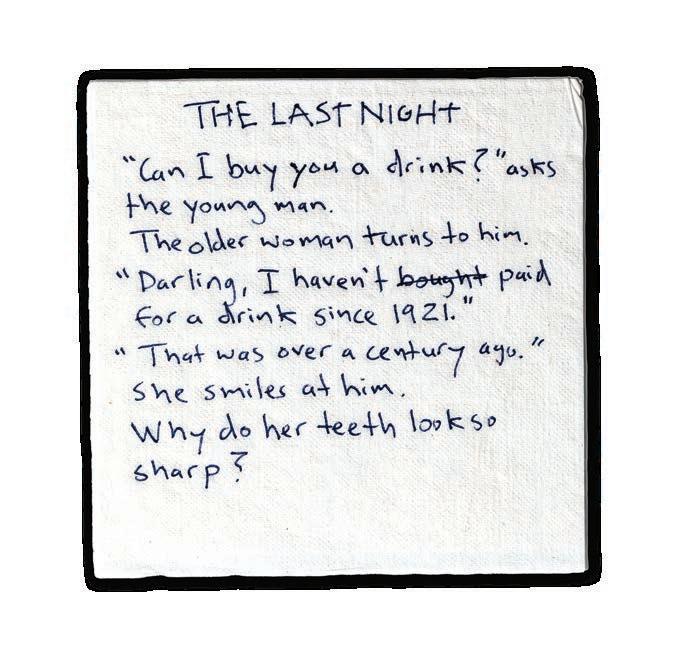 THE LAST NIGHT
"Can I buy you a drink?" asks
the young man.
The older woman turns to him.
"Darling, I haven't ~~bought~~ paid
for a drink since 1921."
"That was over a century ago."
She smiles at him.
Why do her teeth look so
sharp?